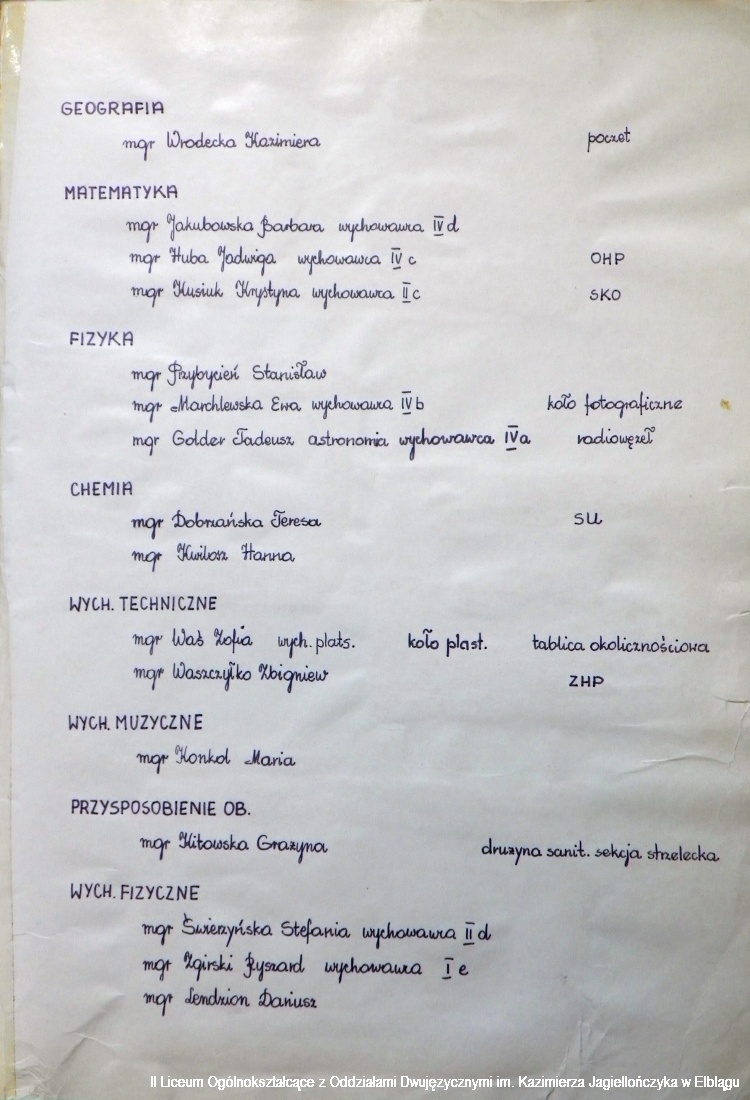 GEOGRAFIA
mgr Wrodecka Kazimiera poczet
MATEMATYKA
mgr Jakubowska Barbara wychowawca IV d
mgr Huba Jadwiga wychowawca IV c OHP
mgr Kusiuk Krystyna wychowawca II c SKO
FIZYKA
mgr Przybycień Stanisław
mgr Marchlewska Ewa wychowawca IV b koło fotograficzne
mgr Golder Tadeusz astronomia wychowawca IV a radiowęzeł
CHEMIA
mgr Dobrzańska Teresa SU
mgr Kwilosz Hanna
WYCH. TECHNICZNE
mgr Waś Zofia wych. plats. koło plast. tablica okolicznościowa
mgr Waszczyłko Zbigniew ZHP
WYCH. MUZYCZNE
mgr Konkol Maria
PRZYSPOSOBIENIE OB.
mgr Kitowska Grażyna drużyna sanit. sekcja strzelecka
WYCH. FIZYCZNE
mgr Świerzyńska Stefania wychowawca II d
mgr Zgirski Ryszard wychowawca I e
mgr Lendzion Dariusz
II Liceum Ogólnokształcące z Oddziałami Dwujęzycznymi im. Kazimierza Jagiellończyka w Elblągu